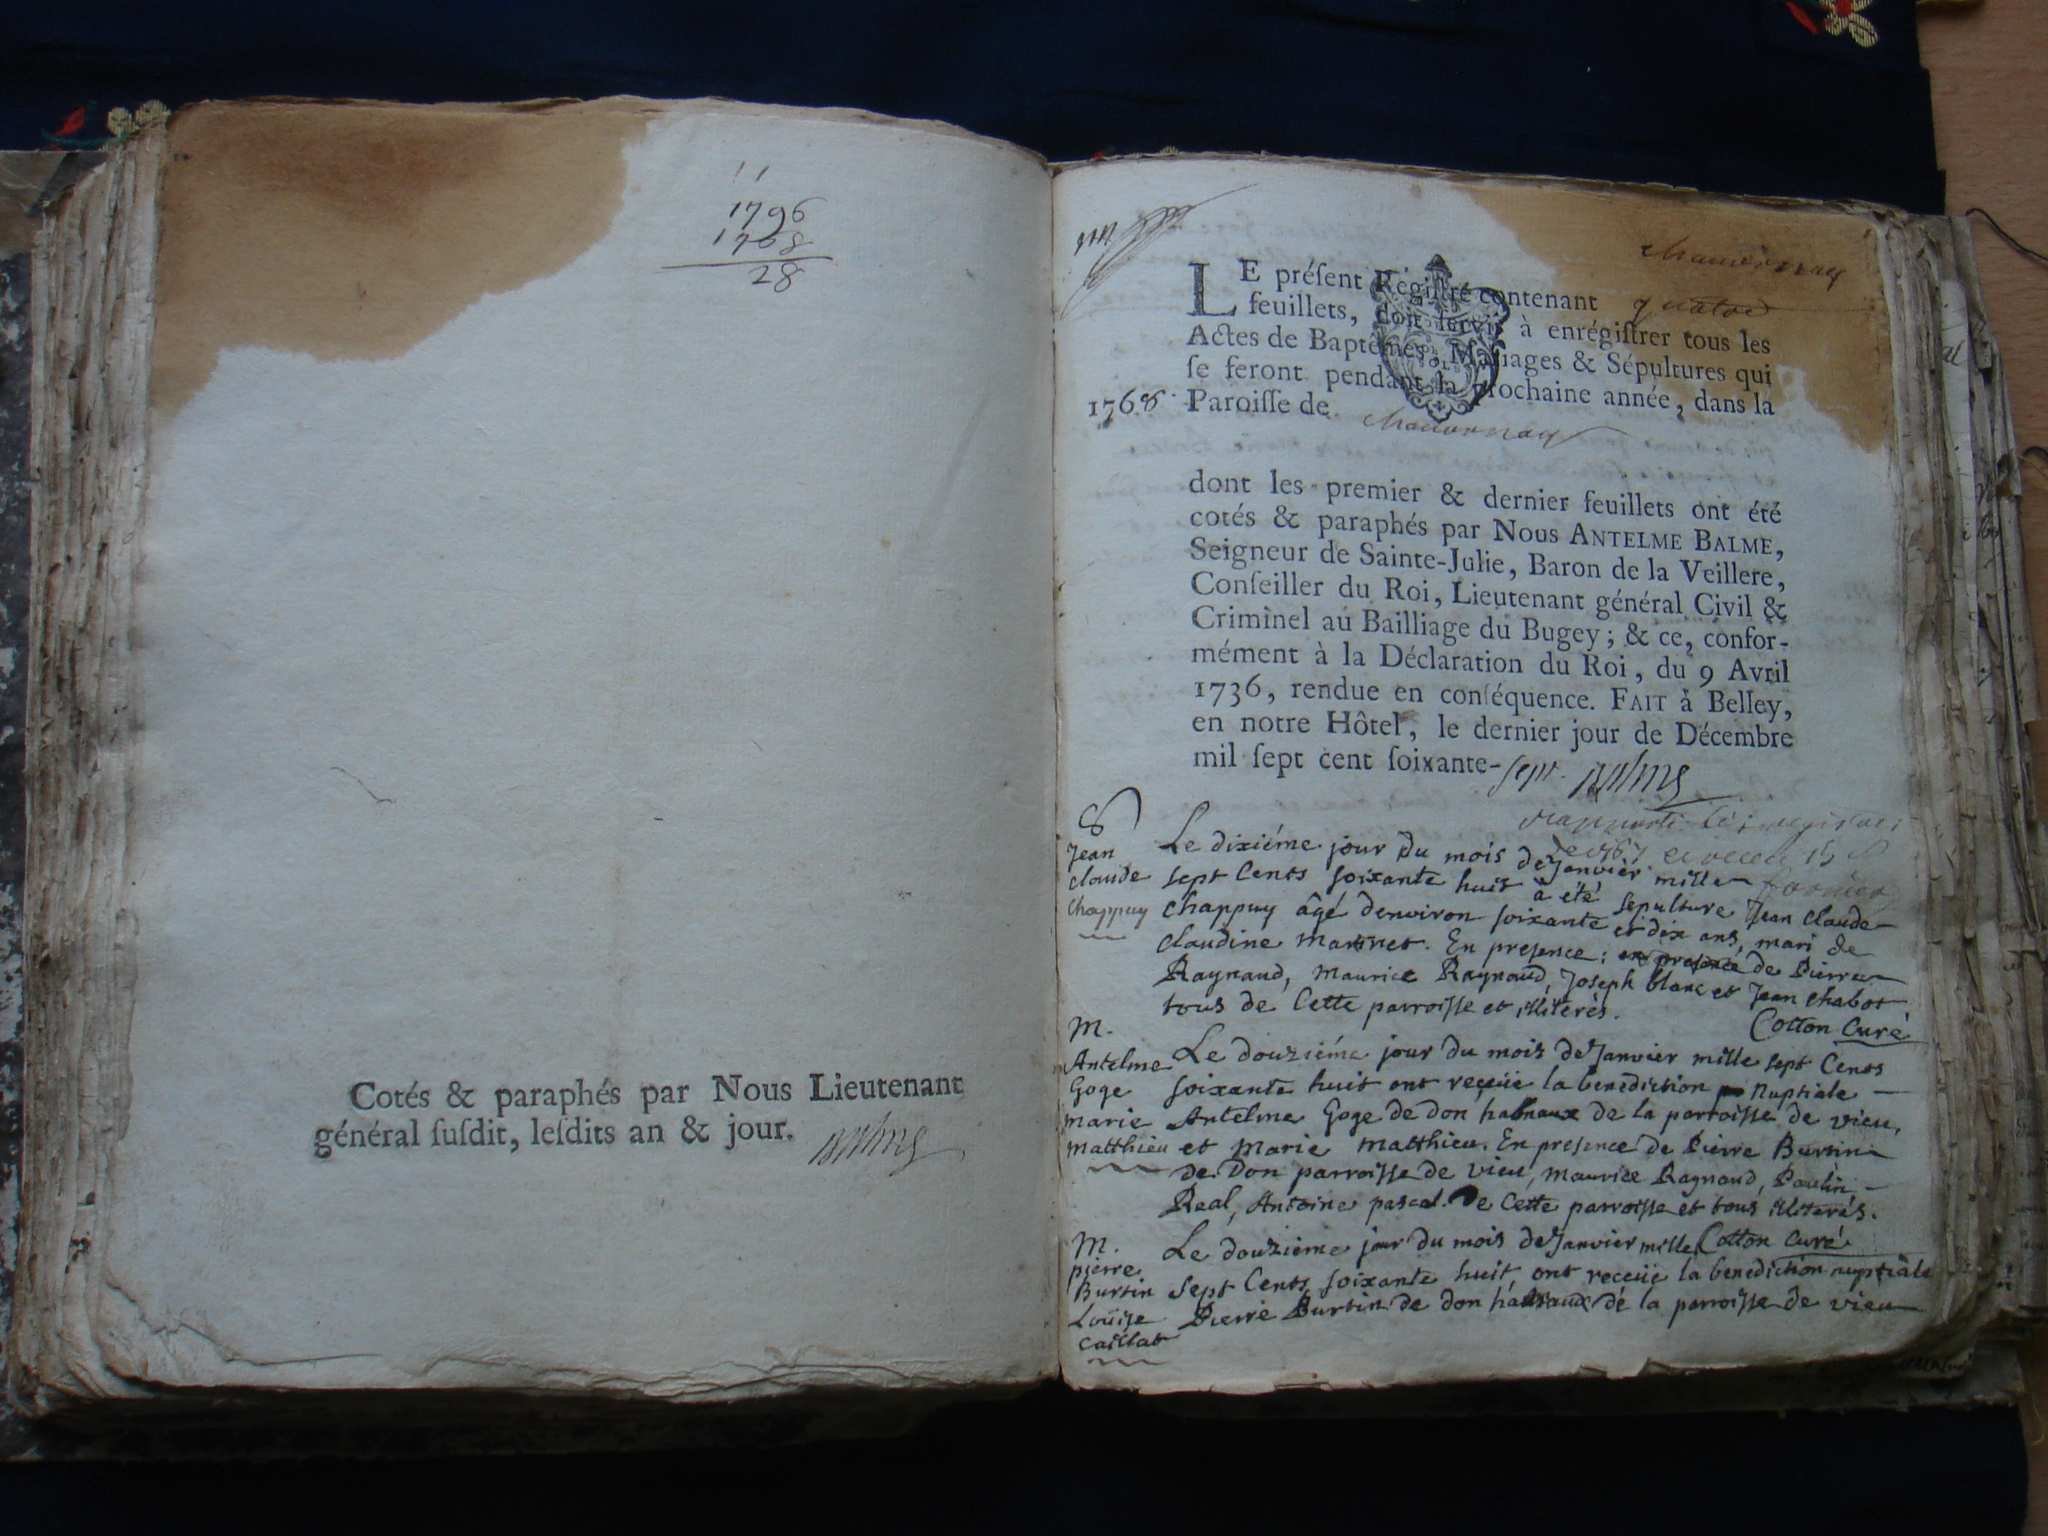 1796
1768
28
Cotés & paraphés par Nous Lieutenant
général ſuſdit, leſdits an & jour.
Balme
Chavornay
LE préſent Régiſtre contenant quatorze
feuillets, doit ſervir à enrégiſtrer tous les
Actes de Baptêmes, Mariages & Sépultures qui
ſe feront pendant la prochaine année, dans la
1768 Paroiſſe de Chavornay
dont les premier & dernier feuillets ont été
cotés & paraphés par Nous ANTELME BALME,
Seigneur de Sainte-Julie, Baron de la Veillere,
Conſeiller du Roi, Lieutenant général Civil &
Criminel au Bailliage du Bugey; & ce, confor-
mément à la Déclaration du Roi, du 9 Avril
1736, rendue en conſéquence. FAIT à Belley,
en notre Hôtel, le dernier jour de Décembre
mil ſept cent ſoixante-sept. Balme
Jean
claude
chappuy
Le dixiéme jour du mois de Janvier mille
sept Cents soixante huit à été sepulture Jean claude
chappuy âgé denviron soixante et dix ans, mari de
claudine martinet. En presence; en presence de Pierre
Raynaud, maurice Raynaud, Joseph blanc et Jean chabot
tous de Cette parroisse et illiterés.
Cotton Curé
M.
Antelme
Goge
marie
matthieu
Le douziéme jour du mois de Janvier mille sept Cents
soixante huit ont reçeüe la benediction nuptiale
Antelme Goge de don de la parroisse de vieu,
et marie matthieu. En presence de Pierre Burtin
de Don parroisse de vieu, maurice Raynaud, Paulin
Real, Antoine pascal de Cette parroisse et tous illiterés.
Cotton Curé
M.
pierre
Burtin
Loüise
caillat
Le douzieme jour du mois de Janvier mille
sept Cents soixante huit, ont receüe la benediction nuptiale
Pierre Burtin de don de la parroisse de vieu